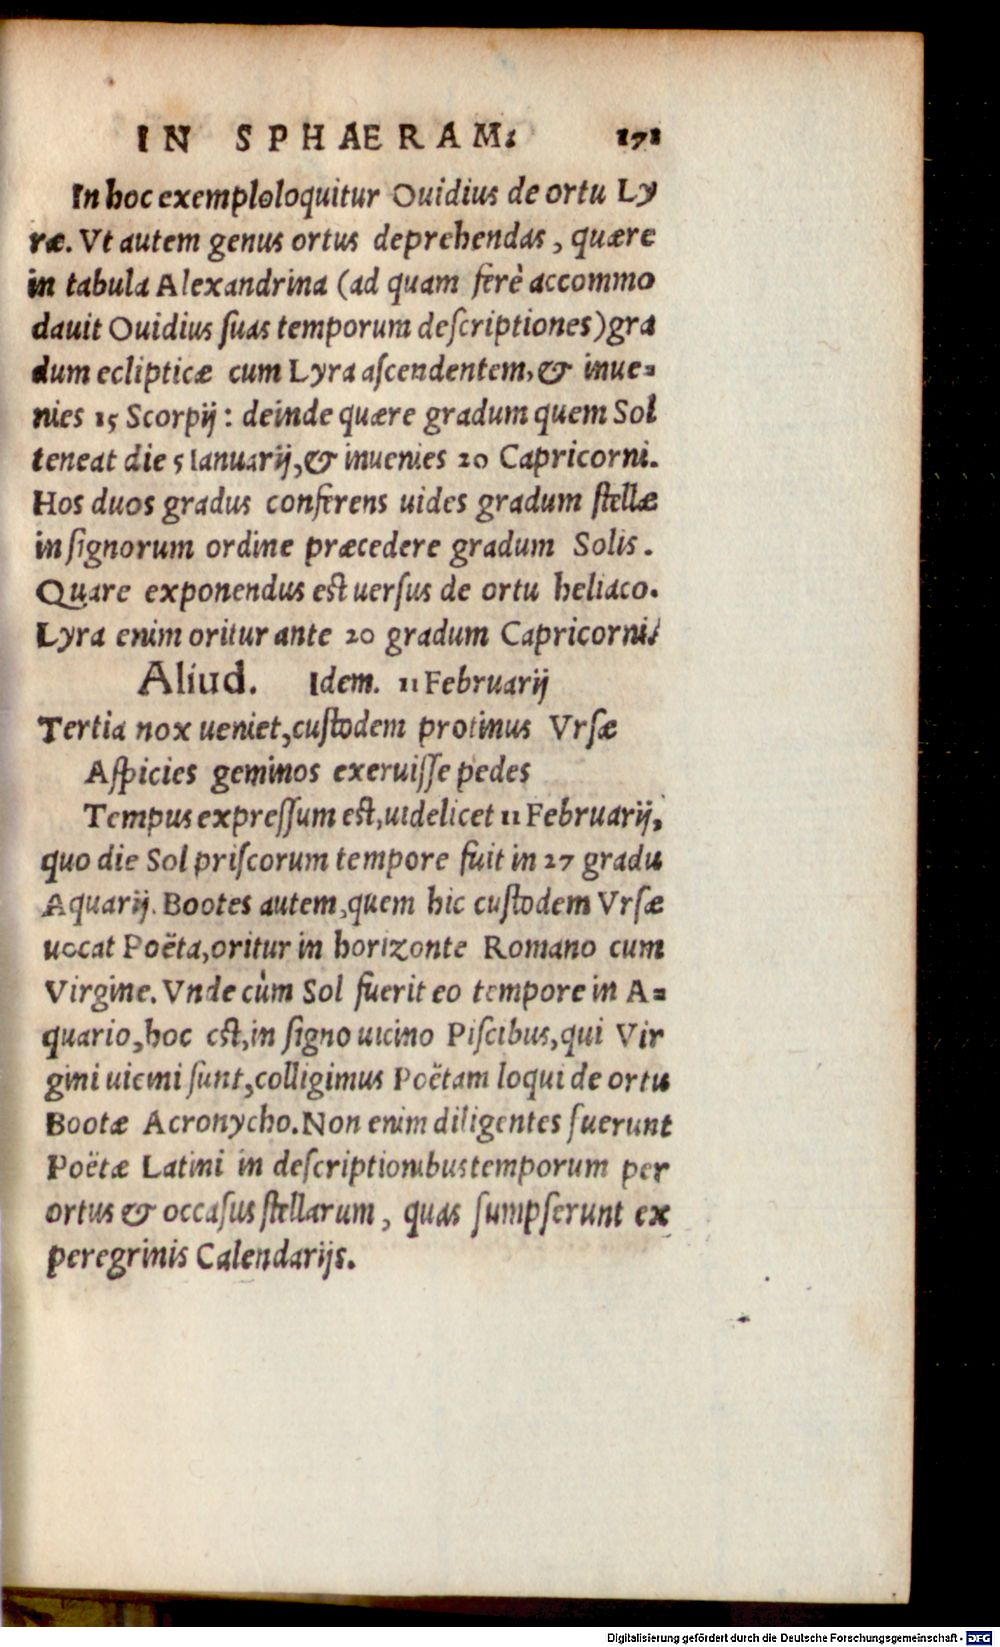 IN SPHAERAM: 171
In hoc exemplo loquitur Ouidius de ortu Ly
ræ. Vt autem genus ortus deprehendas, quære
in tabula Alexandrina (ad quam ferè accommo
dauit Ouidius suas temporum descriptiones) gra
dum eclipticæ cum Lyra ascendentem, & inue=
nies 15 Scorpij: deinde quære gradum quem Sol
teneat die 5 Ianuarij, & inuenies 20 Capricorni.
Hos duos gradus conferens uides gradum stellæ
in signorum ordine præcedere gradum Solis.
Quare exponendus est uersus de ortu heliaco.
Lyra enim oritur ante 20 gradum Capricorni.
Aliud. Idem. 11 Februarij
Tertia nox ueniet, custodem protinus Vrsæ
Aspicies geminos exeruisse pedes
Tempus expressum est, uidelicet 11 Februarij,
quo die Sol priscorum tempore fuit in 27 gradu
Aquarij. Bootes autem, quem hic custodem Vrsæ
uocat Poëta, oritur in horizonte Romano cum
Virgine. Vnde cùm Sol fuerit eo tempore in A=
quario, hoc est, in signo uicino Piscibus, qui Vir
gini uicini sunt, colligimus Poëtam loqui de ortu
Bootæ Acronycho. Non enim diligentes fuerunt
Poëtæ Latini in descriptionibus temporum per
ortus & occasus stellarum, quas sumpserunt ex
peregrinis Calendarijs.
Digitalisierung gefördert durch die Deutsche Forschungsgemeinschaft - DFG